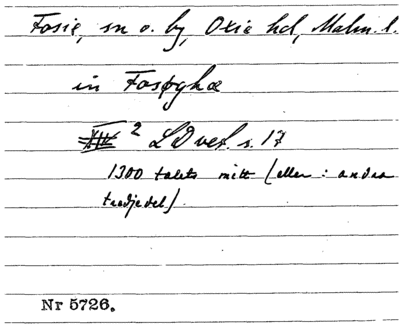 Fosie, sn o. by, Oxie hd, Malm. l.
in Fosøyhæ
2 LDvef. s. 17
1300 talets mitt (eller: andra
tredjedel).
Nr 5726.